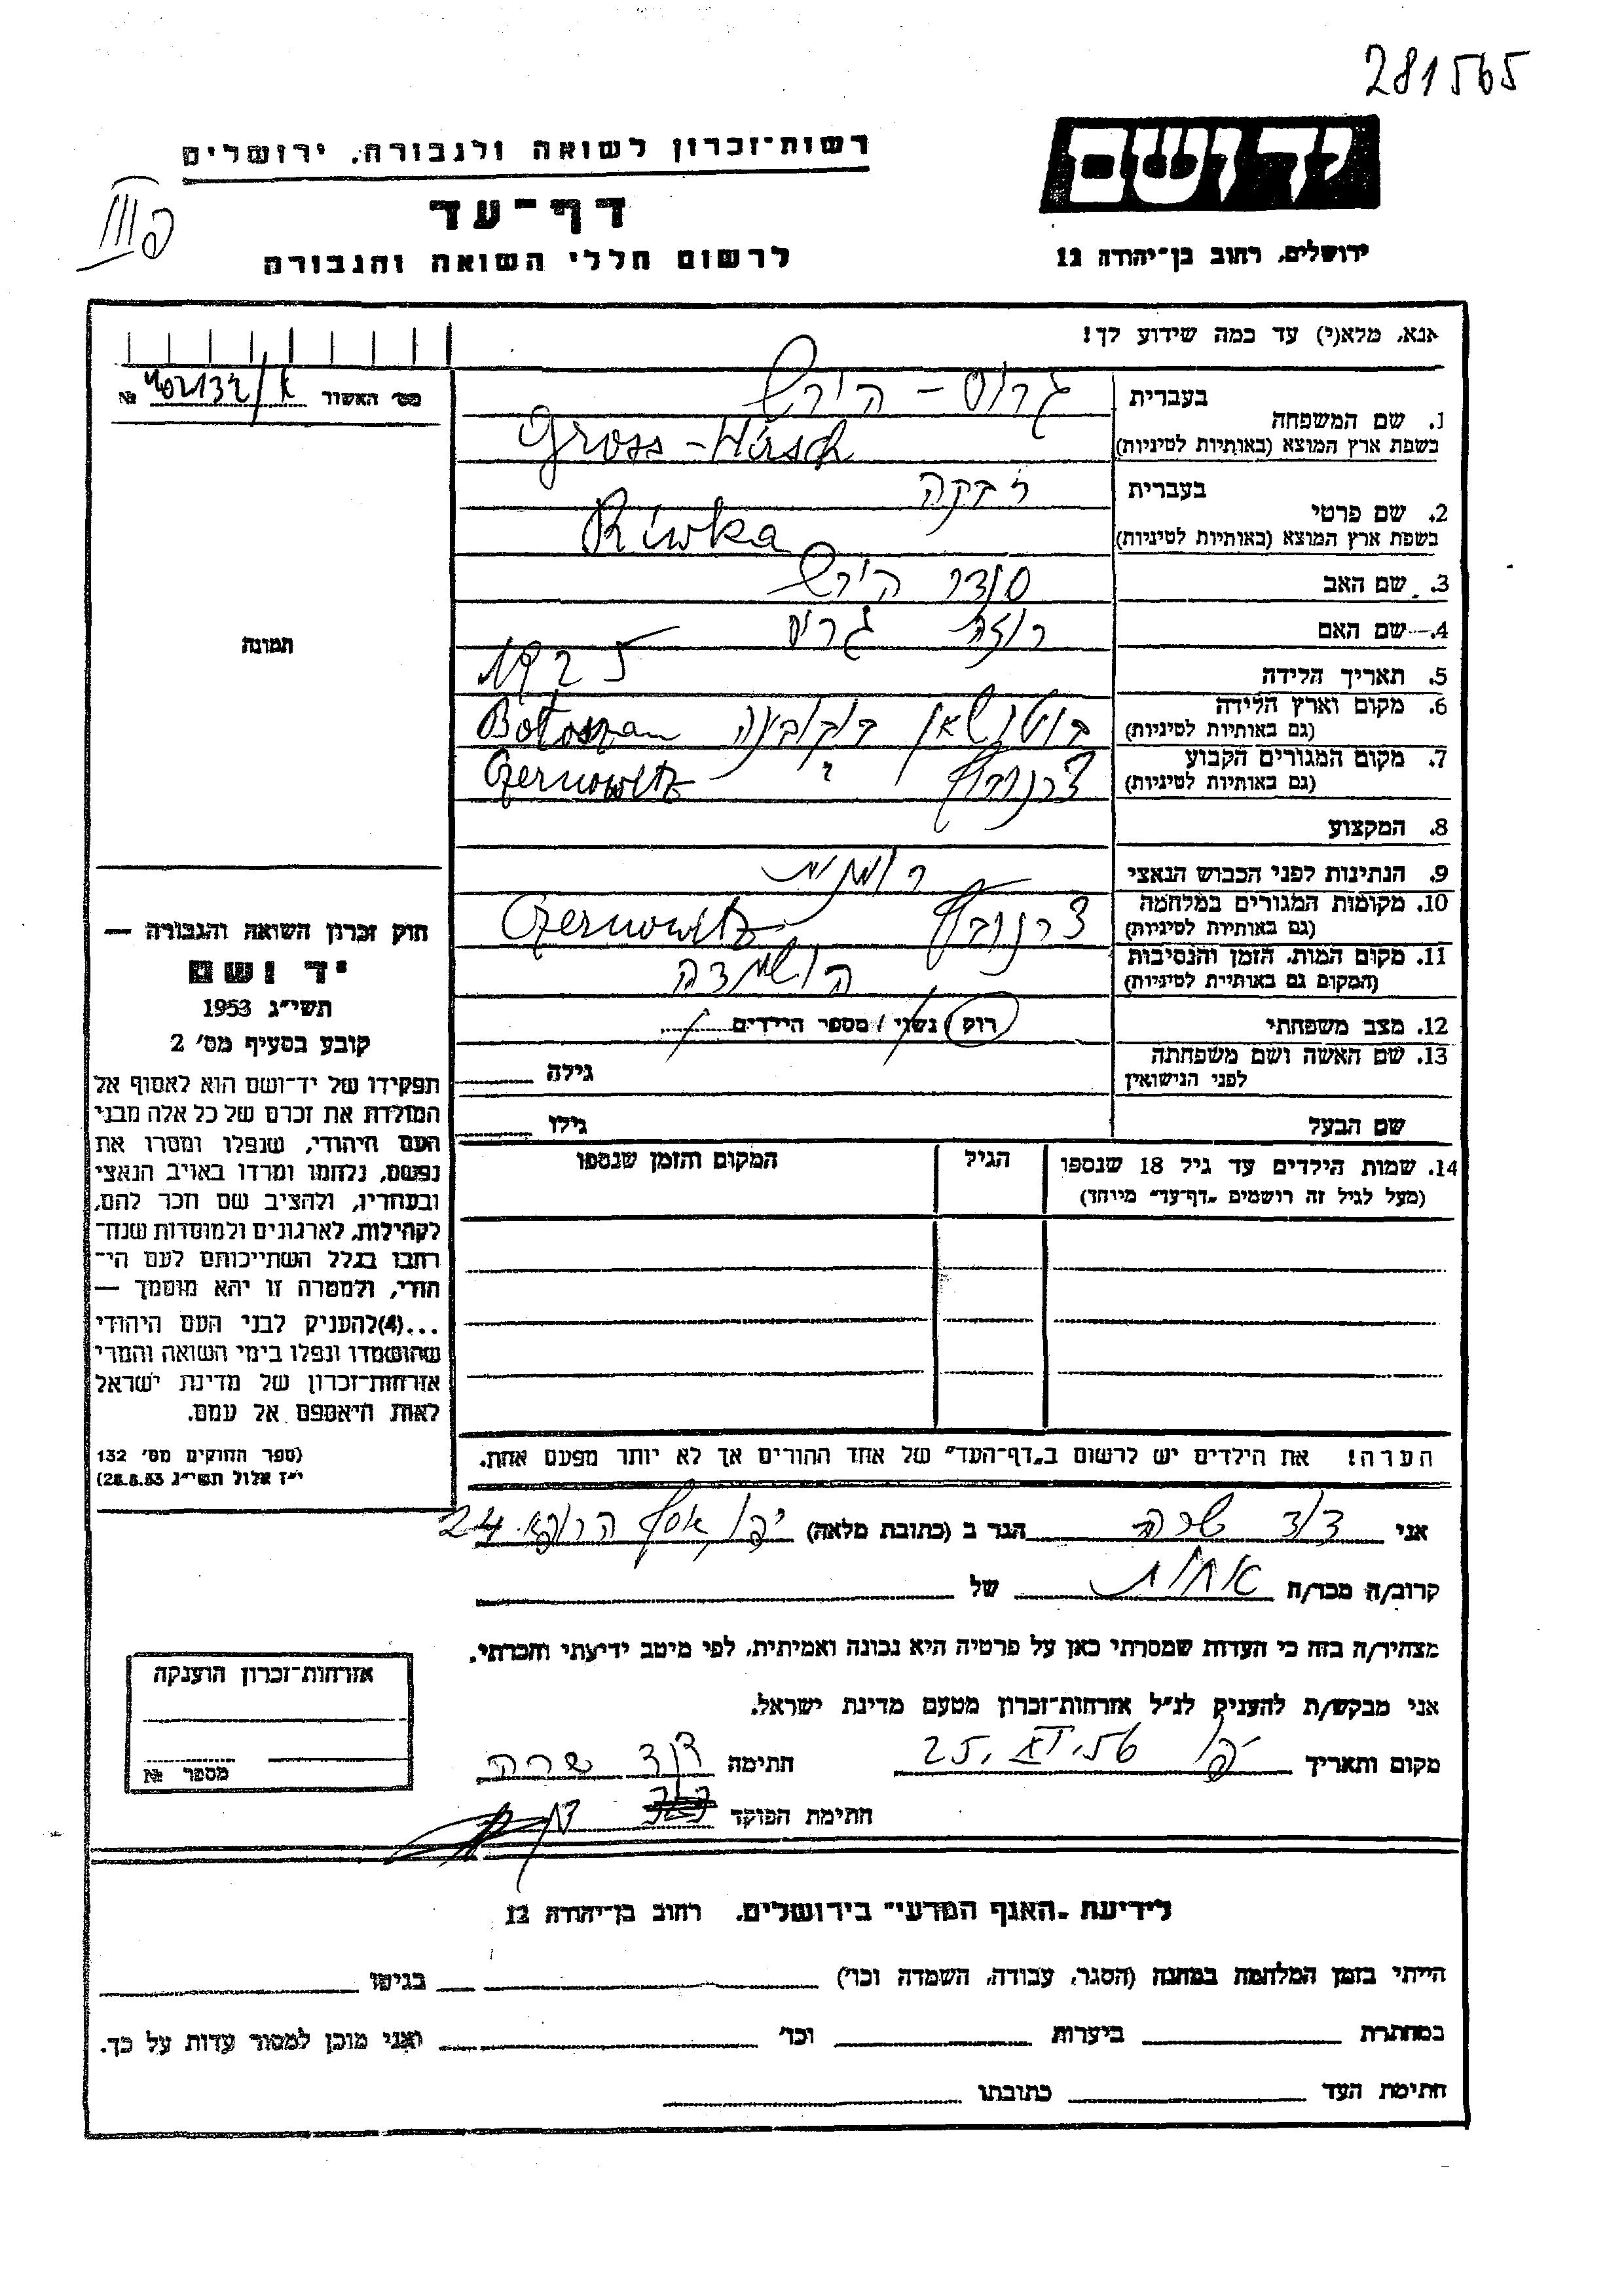 281565
יד ושם
ירושלים, רחוב בן־יהודה 12
רשות־זכרון לשואה ולגבורה, ירושלים
דף־עד
לרשום חללי השואה והגבורה
III
אנא, מלא(י) עד כמה שידוע לך!
מס׳ האשור №
1. שם המשפחה בעברית גרוס - הירש
בשפת ארץ המוצא (באותיות לטיניות) Gross - Hirsch
2. שם פרטי בעברית רבקה
בשפת ארץ המוצא (באותיות לטיניות) Riwka
3. שם האב סנדר הירש
4. שם האם רוזה גרוס
5. תאריך הלידה 1925
6. מקום וארץ הלידה בוטושאן בוקובינה Botoszan
(גם באותיות לטיניות)
7. מקום המגורים הקבוע צרנוביץ Czernowitz
(גם באותיות לטיניות)
8. המקצוע
9. הנתינות לפני הכבוש הנאצי רומנית
10. מקומות המגורים במלחמה צרנוביץ Czernowitz
(גם באותיות לטיניות)
11. מקום המות, הזמן והנסיבות הושמדה
(המקום גם באותיית לטיניות)
12. מצב משפחתי רוק / נשוי / מספר הילדים
13. שם האשה ושם משפחתה
לפני הנישואין גילה
שם הבעל גילו
14. שמות הילדים עד גיל 18 שנספו הגיל המקום והזמן שנספו
(מעל לגיל זה רושמים „דף־עד״ מיוחד)
הערה! את הילדים יש לרשום ב„דף־העד״ של אחד ההורים אך לא יותר מפעם אחת.
תמונה
חוק זכרון השואה והגבורה —
יד ושם
תשי״ג 1953
קובע בסעיף מס׳ 2
תפקידו של יד־ושם הוא לאסוף אל
המולדת את זכרם של כל אלה מבני
העם היהודי, שנפלו ומסרו את
נפשם, נלחמו ומרדו באויב הנאצי
ובעוזריו, ולהציב שם וזכר להם,
לקהילות, לארגונים ולמוסדות שנח־
רבו בגלל השתייכותם לעם הי־
הודי, ולמטרה זו יהא מוסמך —
...(4)להעניק לבני העם היהודי
שהושמדו ונפלו בימי השואה והמרי
אזרחות־זכרון של מדינת ישראל
לאות היאספם אל עמם.
(ספר החוקים מס׳ 132
י״ז אלול תשי״ג 28.8.53)
אני דוד שרה הגר ב (כתובת מלאה) יפו אסף הרופא 24
קרוב/ה מכר/ה אחות של
מצהיר/ה בזה כי העדות שמסרתי כאן על פרטיה היא נכונה ואמיתית, לפי מיטב ידיעתי והכרתי.
אני מבקש/ת להעניק לנ״ל אזרחות־זכרון מטעם מדינת ישראל.
מקום ותאריך יפו 25. XI. 56 חתימה דוד שרה
חתימת הפוקד
אזרחות־זכרון הוענקה
מספר №
לידיעת „האגף המדעי״ בירושלים, רחוב בן־יהודה 12
הייתי בזמן המלחמה במחנה (הסגר, עבודה, השמדה וכו׳) בגיטו
במחתרת ביערות וכו׳ ואני מוכן למסור עדות על כך.
חתימת העד כתובתו